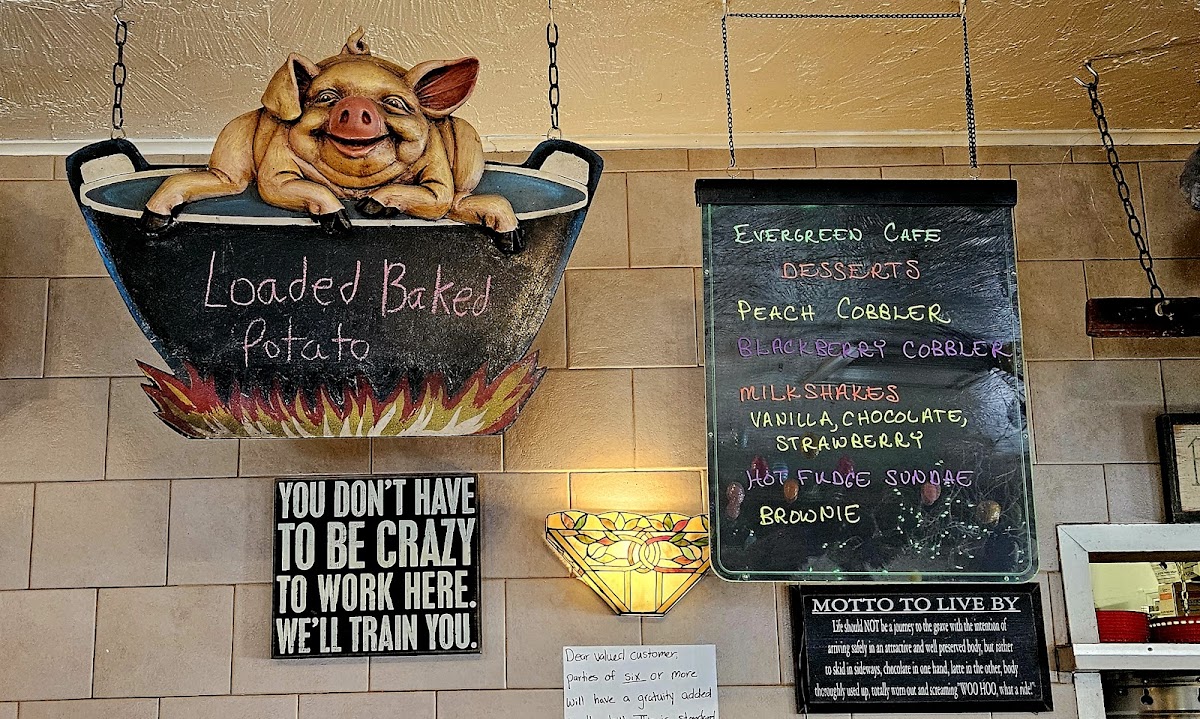 Loaded Baked
Potato
EVERGREEN CAFE
DESSERTS
PEACH COBBLER
BLACKBERRY COBBLER
MILKSHAKES
VANILLA, CHOCOLATE,
STRAWBERRY
HOT FUDGE SUNDAE
BROWNIE
YOU DON'T HAVE
TO BE CRAZY
TO WORK HERE.
WE'LL TRAIN YOU.
Dear valued customer,
parties of six or more
will have a gratuity added
MOTTO TO LIVE BY
Life should NOT be a journey to the grave with the intention of
arriving safely in an attractive and well preserved body, but rather
to skid in sideways, chocolate in one hand, latte in the other, body
thoroughly used up, totally worn out and screaming "WOO HOO, what a ride!"